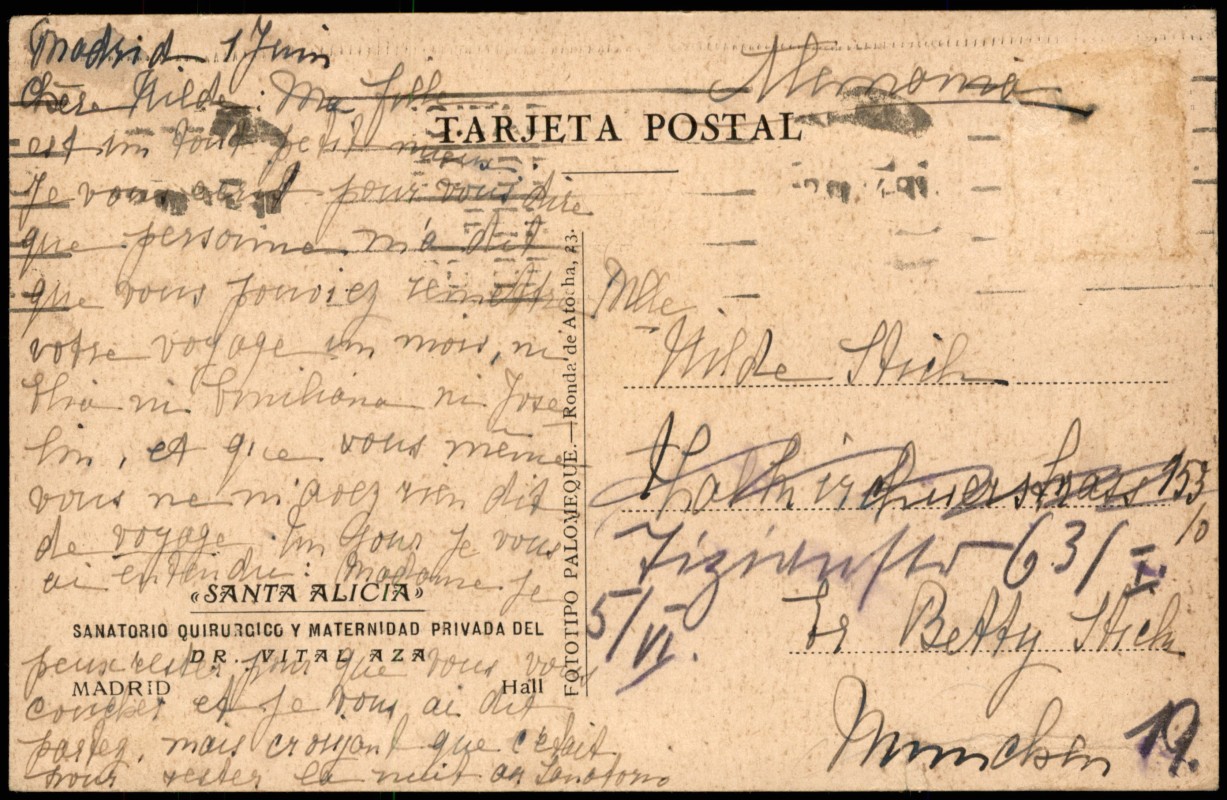 Madrid 1 Juin
Chère Hilde: Ma fille
est un tout petit mieux
Je vous écrit pour vous dire
que personne m'a dit
que vous pouviez remettre
votre voyage un mois, ni
Elvia ni Emiliana ni Jose
lin, et que vous même
vous ne m'avez rien dit
de voyage. Un jour je vous
ai entendu: Madame je
peux rester pour que vous vous
couchez et je vous ai dit
partez, mais croyant que c'etait
pour rester la nuit au Sanatorio
«SANTA ALICIA»
SANATORIO QUIRURGICO Y MATERNIDAD PRIVADA DEL
DR. VITAL AZA
MADRID Hall
TARJETA POSTAL
FOTOTIPO PALOMEQUE.—Ronda de Atocha, 23.
Alemania
Mlle
Hilde Stich
153
10
63/I
5/VI.
Betty Stich
München 19.